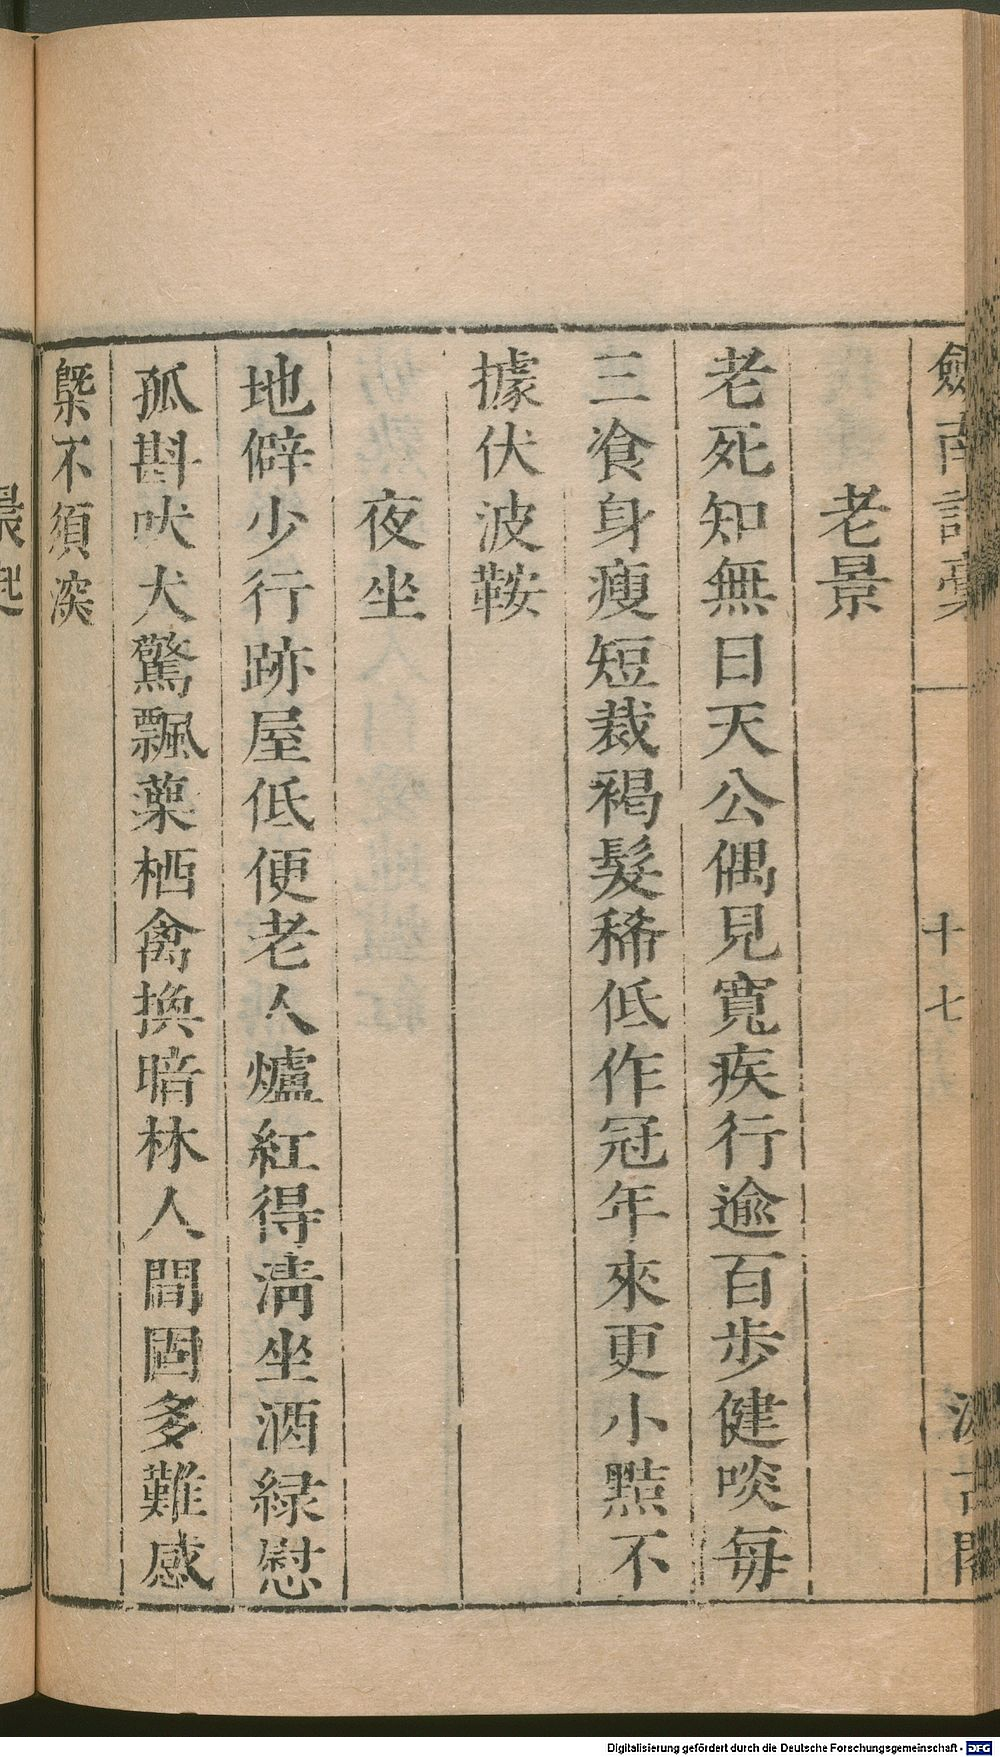 劒南詩稾
十七
汲古閣
老景
老死知無日天公偶見寛疾行逾百步健啖每
三飡身瘦短裁褐髮稀低作冠年來更小黠不
據伏波鞍
夜坐
地僻少行跡屋低便老人爐紅得淸坐酒緑慰
孤斟吠犬驚飄葉栖禽換暗林人間固多難感
槩不須深
晨起
Digitalisierung gefördert durch die Deutsche Forschungsgemeinschaft - DFG